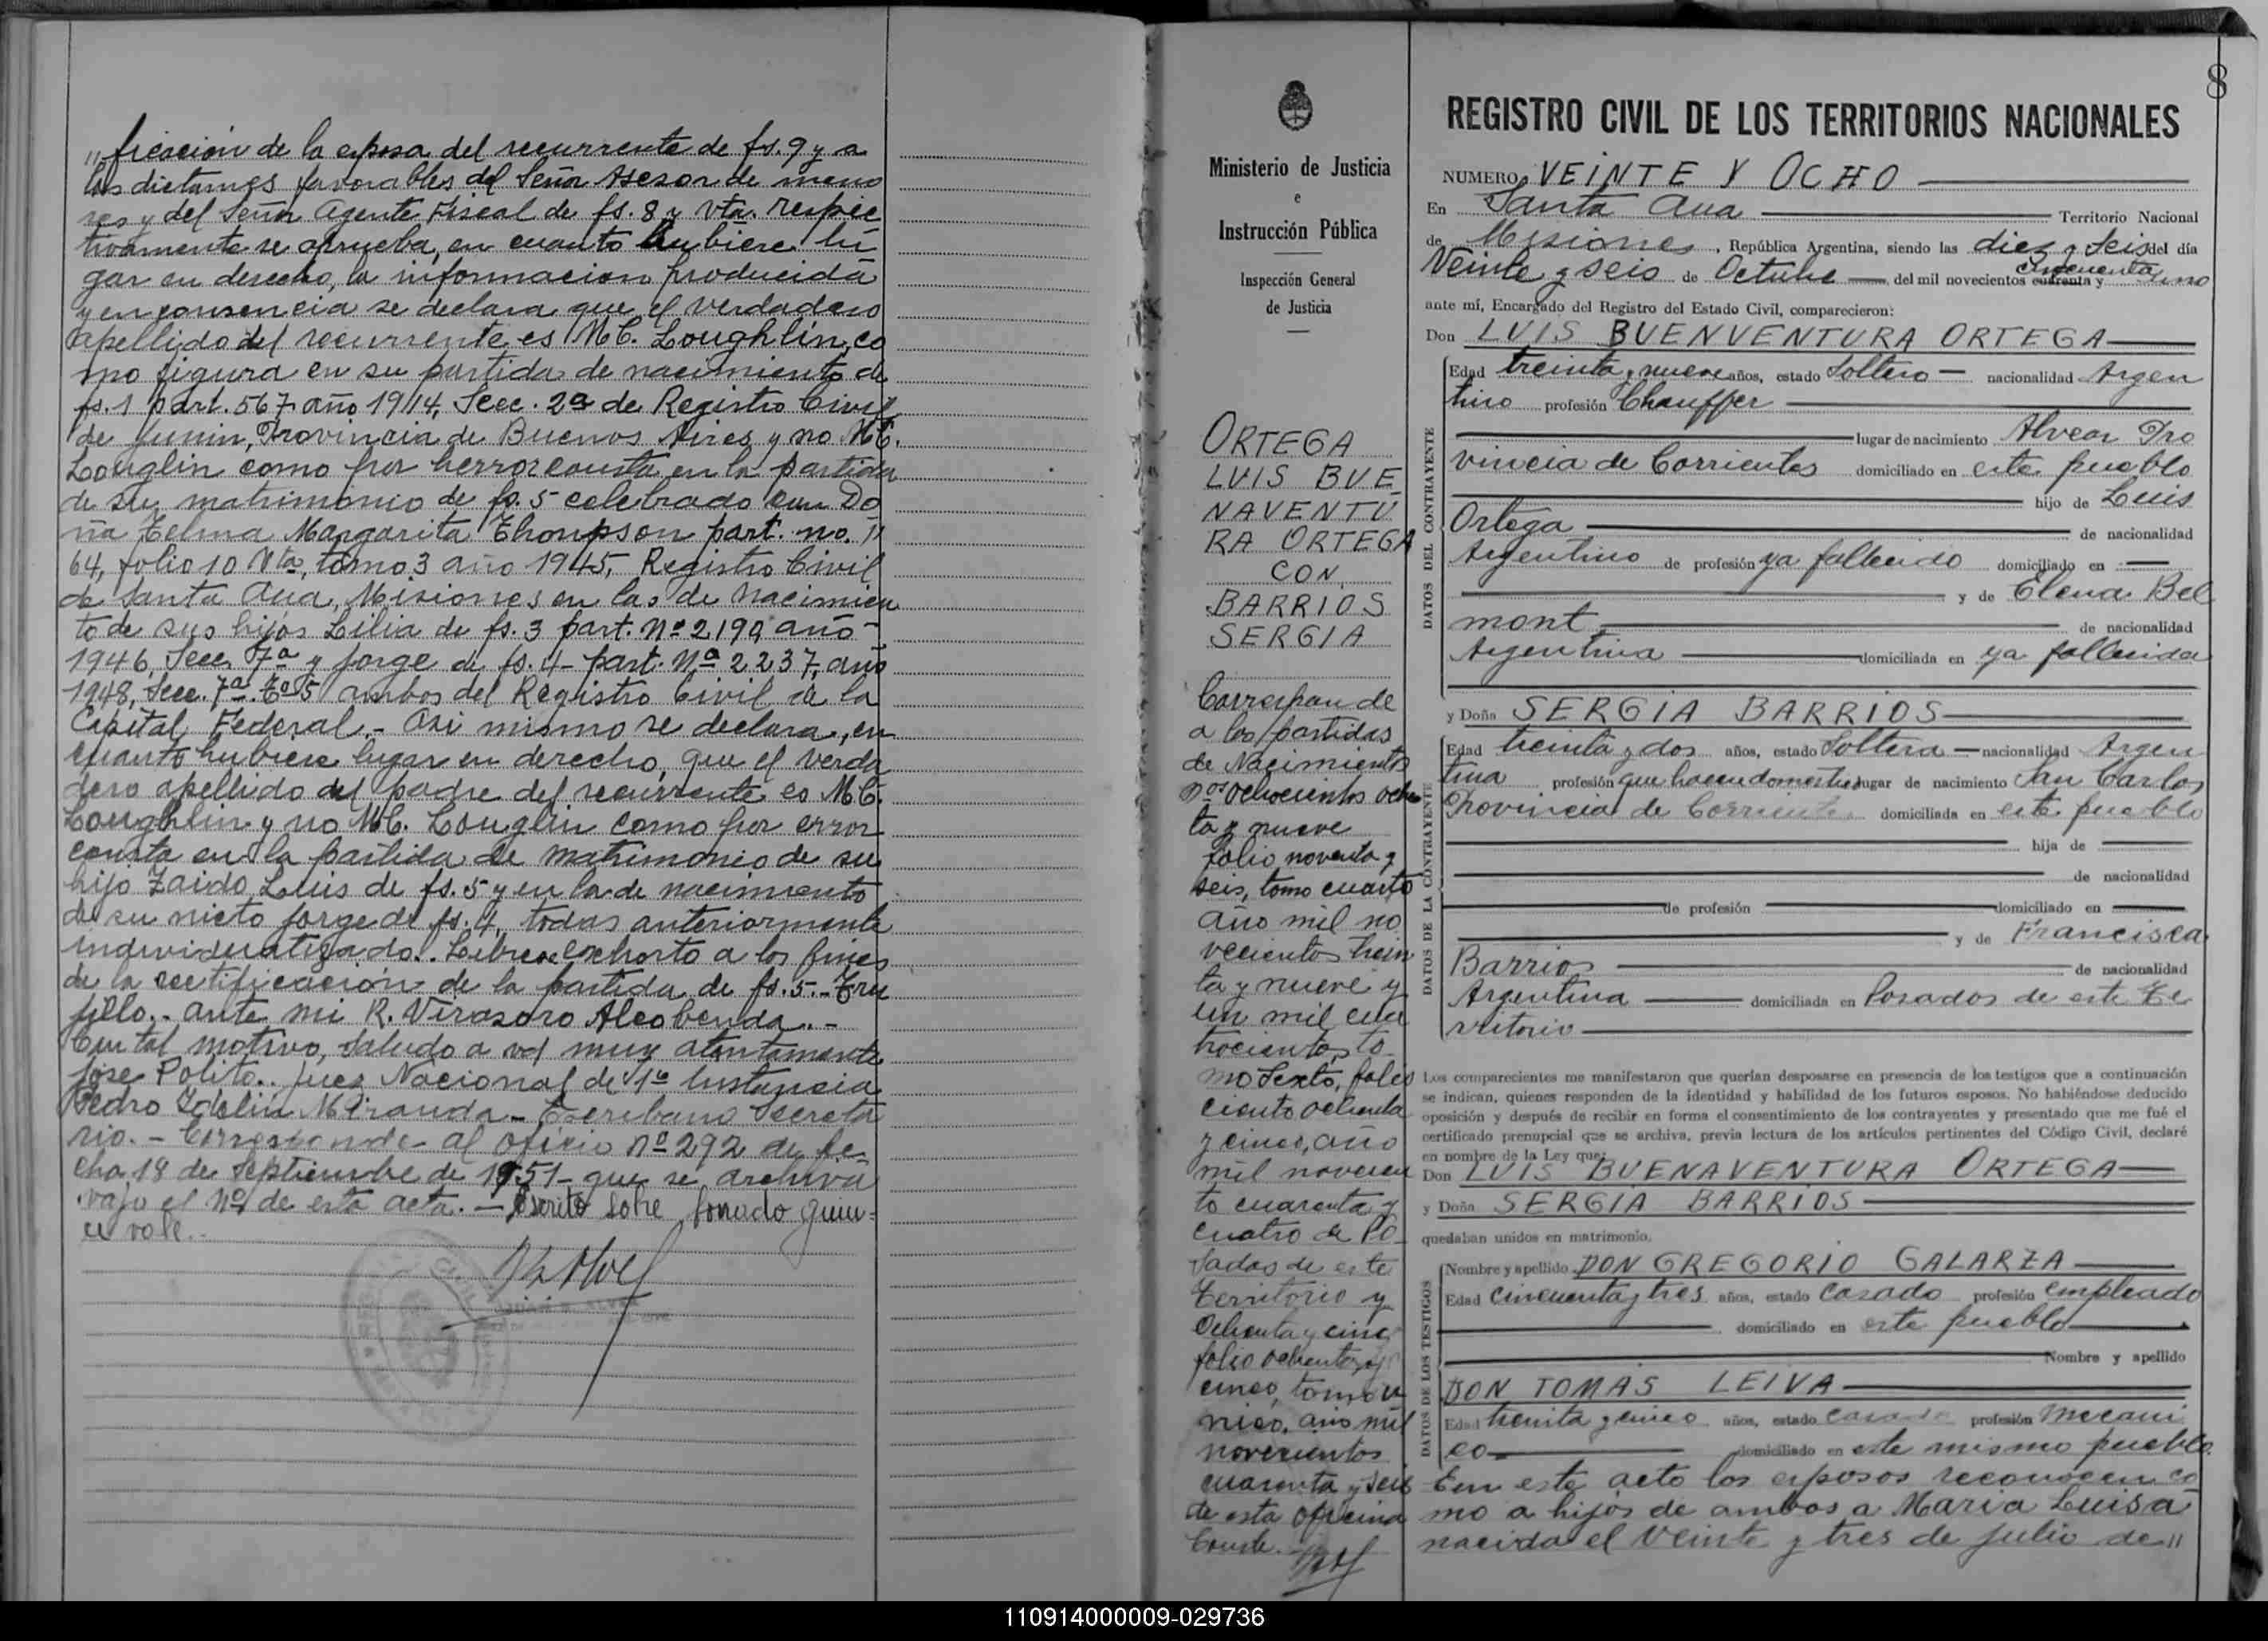 „ficación de la esposa del recurrente de fs. 9 y a
los dictames favorables del Señor Asesor de meno
res y del Señor Agente Fiscal de fs. 8 y vta. respec
tivamente se aprueba, en cuanto hubiere lu
gar en derecho, la informacion producida
y en consencia se declara que el verdadero
apellido del recurrente es Mc. Loughlin, co
mo figura en su partida de nacimiento de
fs. 1 part. 567 año 1914, Secc. 2a de Registro Civil
de Junin, Provincia de Buenos Aires y no Mc.
Louglin como por herror consta en la partida
de su matrimonio de fs. 5 celebrado con Do
ña Zelma Margarita Thonpson part. no. "
64, folio 10 Vta, tomo 3 año 1945, Registro Civil
de Santa Ana, Misiones en las de nacimien
to de sus hijos Lilia de fs. 3 part. Nº 2199 año
1946, Secc. 7a y Jorge de fs. 4 - part. Na 2237, año
1948, Secc. 7a To 5 ambos del Registro Civil de la
Capital Federal.- Asi mismo se declara, en
cuanto hubiere lugar en derecho, que el verda
dero apellido del padre del recurrente es Mc.
Loughlin y no Mc. Louglin como por error
consta en la partida de matrimonio de su
hijo Zaido Luis de fs. 5 y en la de nacimiento
de su nieto Jorge de fs. 4, todas anteriormente
individualizado. Librese exhorto a los fines
de la rectificación de la partida de fs. 5.- Tru
jillo.- ante mi R. Virasoro Alcobenda.-
Con tal motivo, saludo a vd muy atentamente
Jose Polito.. Juez Nacional de 1a Instancia
Pedro Idelin Miranda - Escribano Secreta
rio. - Corresponde al oficio nº 292 de fe
cha 18 de Septiembre de 1951 - que se archiva
vajo el Nº de esta acta. - Escrito sobre
vale.-
8
Ministerio de Justicia
e
Instrucción Pública
Inspección General
de Justicia
ORTEGA
LUIS BUE
NAVENTU
RA ORTEGA
CON
BARRIOS
SERGIA
Corresponde
a las partidas
de Nacimientos
nos ochocientos oche
ta y nueve
folio noventa y
seis, tomo cuarto
año mil no
vecientos trein
ta y nueve y
un mil cua
trocientos, to
mo Sexto, folio
ciento ochenta
y cinco, año
mil novecien
to cuarenta y
cuatro de Po
sadas de este
Territorio y
Ochenta y cinco
folio ochenta y
cinco, tomo u
nico, año mil
novecientos
cuarenta y seis
de esta oficina
Conste.-
REGISTRO CIVIL DE LOS TERRITORIOS NACIONALES
NUMERO VEINTE Y OCHO
En Santa Ana Territorio Nacional
de Misiones, República Argentina, siendo las diez y seis del día
Veinte y seis de Octubre del mil novecientos cuarenta y cincuenta uno
ante mí, Encargado del Registro del Estado Civil, comparecieron:
Don LUIS BUENVENTURA ORTEGA
DATOS DEL CONTRAYENTE
Edad treinta y nueve años, estado Soltero nacionalidad Argen
tino profesión Chauffer
lugar de nacimiento Alvear Pro
vincia de Corrientes domiciliado en este pueblo
hijo de Luis
Ortega de nacionalidad
Argentino de profesión ya fallecido domiciliado en
y de Elena Bel
mont de nacionalidad
Argentina domiciliada en ya fallecida
y Doña SERGIA BARRIOS
DATOS DE LA CONTRAYENTE
Edad treinta y dos años, estado Soltera nacionalidad Argen
tina profesión que hacen domestic lugar de nacimiento San Carlos
Provincia de Corrientes domiciliada en este pueblo
hija de
de nacionalidad
de profesión domiciliado en
y de Francisca
Barrios de nacionalidad
Argentina domiciliada en Posadas de este Te
rritorio
Los comparecientes me manifestaron que querían desposarse en presencia de los testigos que a continuación
se indican, quienes responden de la identidad y habilidad de los futuros esposos. No habiéndose deducido
oposición y después de recibir en forma el consentimiento de los contrayentes y presentado que me fué el
certificado prenupcial que se archiva, previa lectura de los artículos pertinentes del Código Civil, declaré
en nombre de la Ley que:
Don LUIS BUENAVENTURA ORTEGA
y Doña SERGIA BARRIOS
quedaban unidos en matrimonio.
DATOS DE LOS TESTIGOS
Nombre y apellido DON GREGORIO GALARZA
Edad cincuenta y tres años, estado casado profesión empleado
domiciliado en este pueblo
Nombre y apellido
DON TOMAS LEIVA
Edad treinta y cinco años, estado casado profesión mecani
co domiciliado en este mismo pueblo.
En este acto los esposos reconocen co
mo a hijos de ambos a Maria Luisa
nacida el veinte y tres de julio de "
110914000009-029736